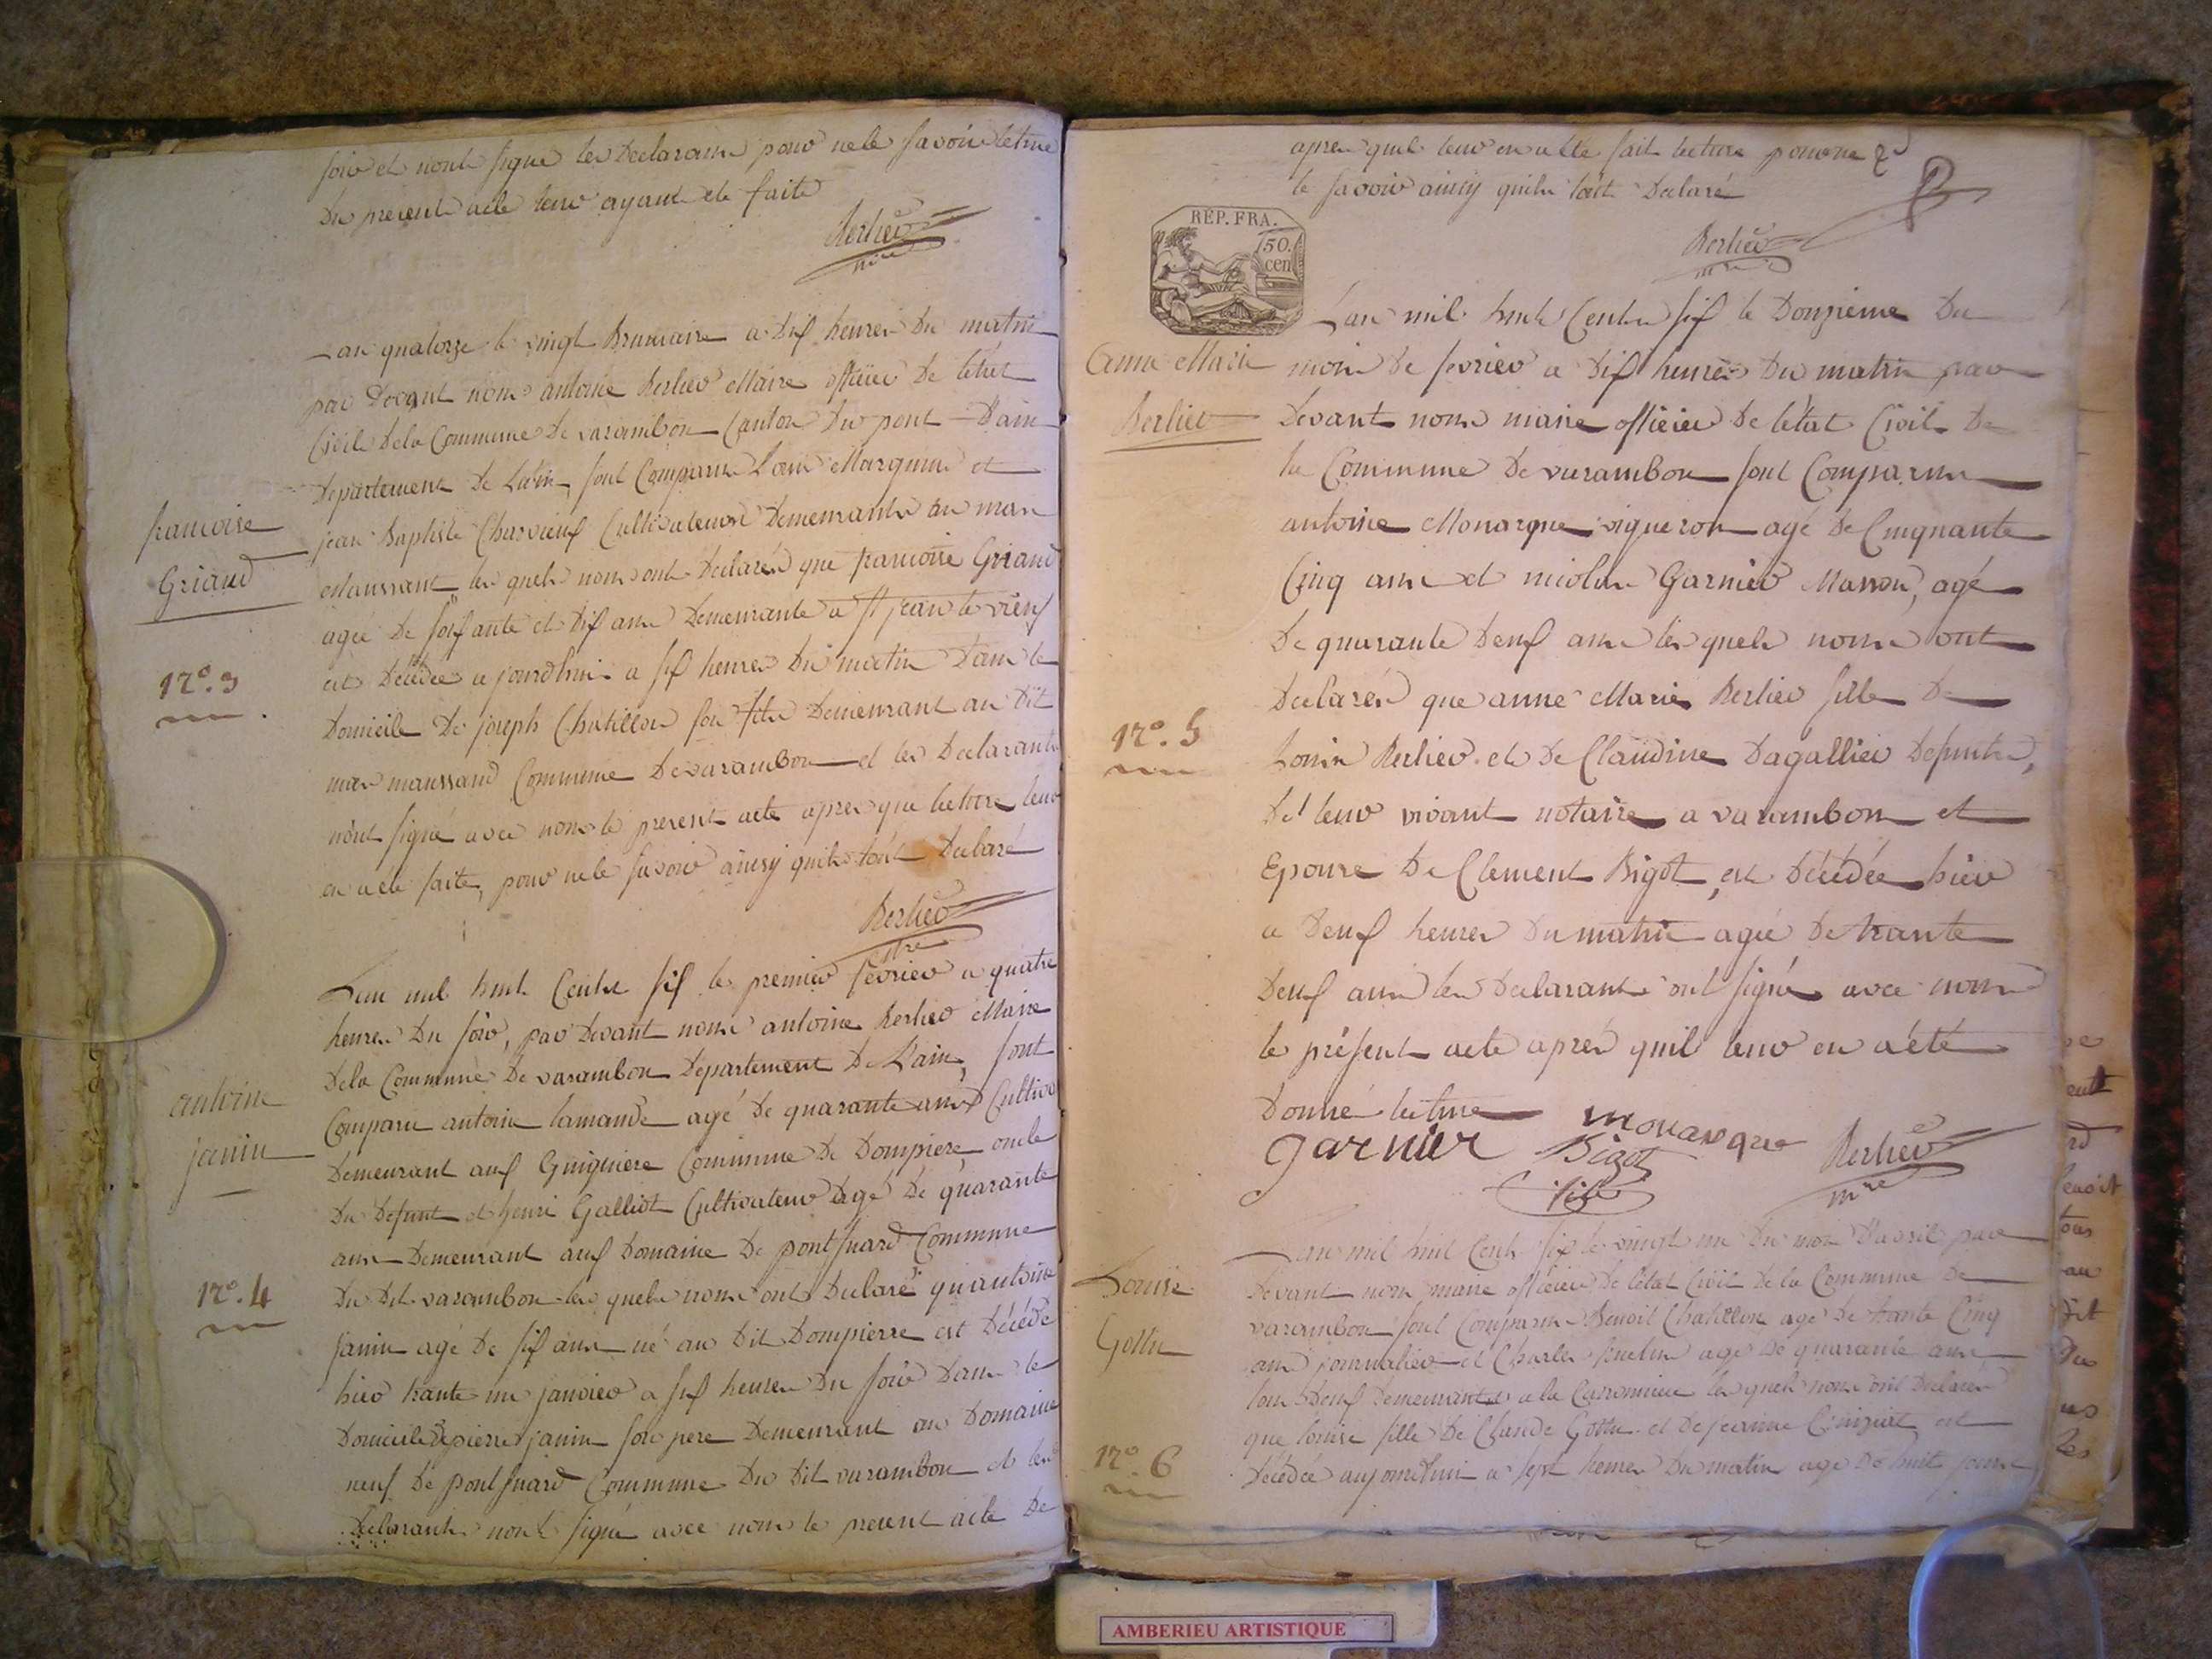 soir et n'ont signé les Declarans pour ne le savoir lecture
Du present acte leur ayant eté faite
Berlier
mre
françoise
Griand
N.º 3
L'an quatorze le vingt Brumaire a dix heures Du matin
par Devant nous antoine Berlier Maire officier De létat
Civil De la Commune De varambon Canton Du pont D'ain
Departement De L'ain, sont Comparus Louis Marguin et
jean Baptiste Charvieux Cultivateurs Demeurants au mas
Maussant les quels nous ont Declarés que francoise Griand
agée De soixante et dix ans Demeurante a St jean le vieux
est Décédée aujourdhui a six heures Du matin Dans le
Domicile De joseph Chatillon son fils Demeurant au Dit
mas maussand Commune De varambon et les Declarants
n'ont signé avec nous le present acte apres que lecture leur
en a eté faite, pour ne le savoir ainsy quils l'ont Declaré
Berlier
mre
antoine
janin
N.º 4
L'an mil huit Cents six le premier fevrier a quatre
heures Du soir, par Devant nous antoine Berlier Maire
De la Commune De varambon Departement De L'ain, sont
Comparu antoine lamande agé De quarante ans Cultivr
Demeurant aux Guigniere Commune De Dompiere, oncle
Du Defunt et henri Galliot Cultivateur agé De quarante
ans Demeurant aux Domaine De pont suard Commune
Du Dit varambon les quels nous ont Declaré qu'antoine
janin agé De six ans né au Dit Dompierre est Décédé
hier trante un janvier a six heures Du soir Dans le
Domicile De pierre janin son pere Demeurant au Domaine
neuf De pont suard Commune Du Dit varambon et les
Declarants n'ont signé avec nous le present acte De
apres quil leur en a été fait lecture pour ne
le savoir ainsy quils l'ont Declaré
Berlier
REP. FRA.
50.
cen
Anne Marie
Berlier
N.º 5
L'an mil huit Cents six le Douzieme Du
mois De fevrier a dix heures Du matin par
Devant nous maire officier De létat Civil De
la Commune De varambon sont Comparus
antoine Monarque vigneron agé De Cinquante
Cinq ans et nicolas Garnier Masson, agé
De quarante Deux ans les quels nous ont
Declarés que anne Marie Berlier fille De
Louis Berlier et De Claudine Dagallier Defunts,
De leur vivant notaire a varambon et
Epouse De Clement Bigot, est Décédée hier
a Deux heures Du matin agée De trante
Deux ans les Declarants ont signés avec nous
le présent acte aprés quil leur en a été
Donné lecture
garnier monarque
Bigot
Berlier
mre
Louise
Gottu
N.º 6
L'an mil huit Cents six le vingt un Du mois D'avril par
Devant nous maire officier De létat Civil De la Commune De
varambon sont Comparus Benoit Chatillon agé De trante Cinq
ans journalier et Charles agé De quarante ans
tous Deux Demeurants a la les quels nous ont Declarés
que louise fille De Claude Gottu et De jeanne est
Décédée aujourdhui a sept heures Du matin agé De huit jours
AMBERIEU ARTISTIQUE